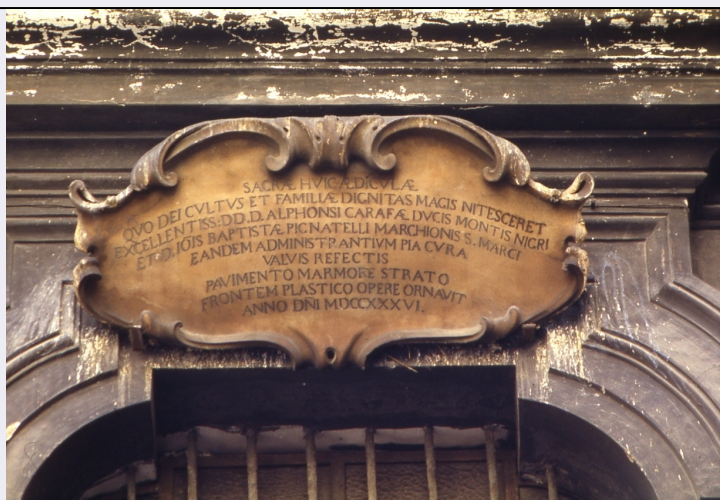 SACRÆ HVIC ÆDICVLÆ
QVO DEI CVLTVS ET FAMILIÆ DIGNITAS MAGIS NITESCERET
EXCELLENTISS: D.D.D. ALPHONSI CARAFÆ DVCIS MONTIS NIGRI
ET D. IOIS BAPTISTÆ PIGNATELLI MARCHIONIS S. MARCI
EANDEM ADMINISTRANTIVM PIA CVRA
VALVIS REFECTIS
PAVIMENTO MARMORE STRATO
FRONTEM PLASTICO OPERE ORNAVIT
ANNO DÑI MDCCXXXVI.